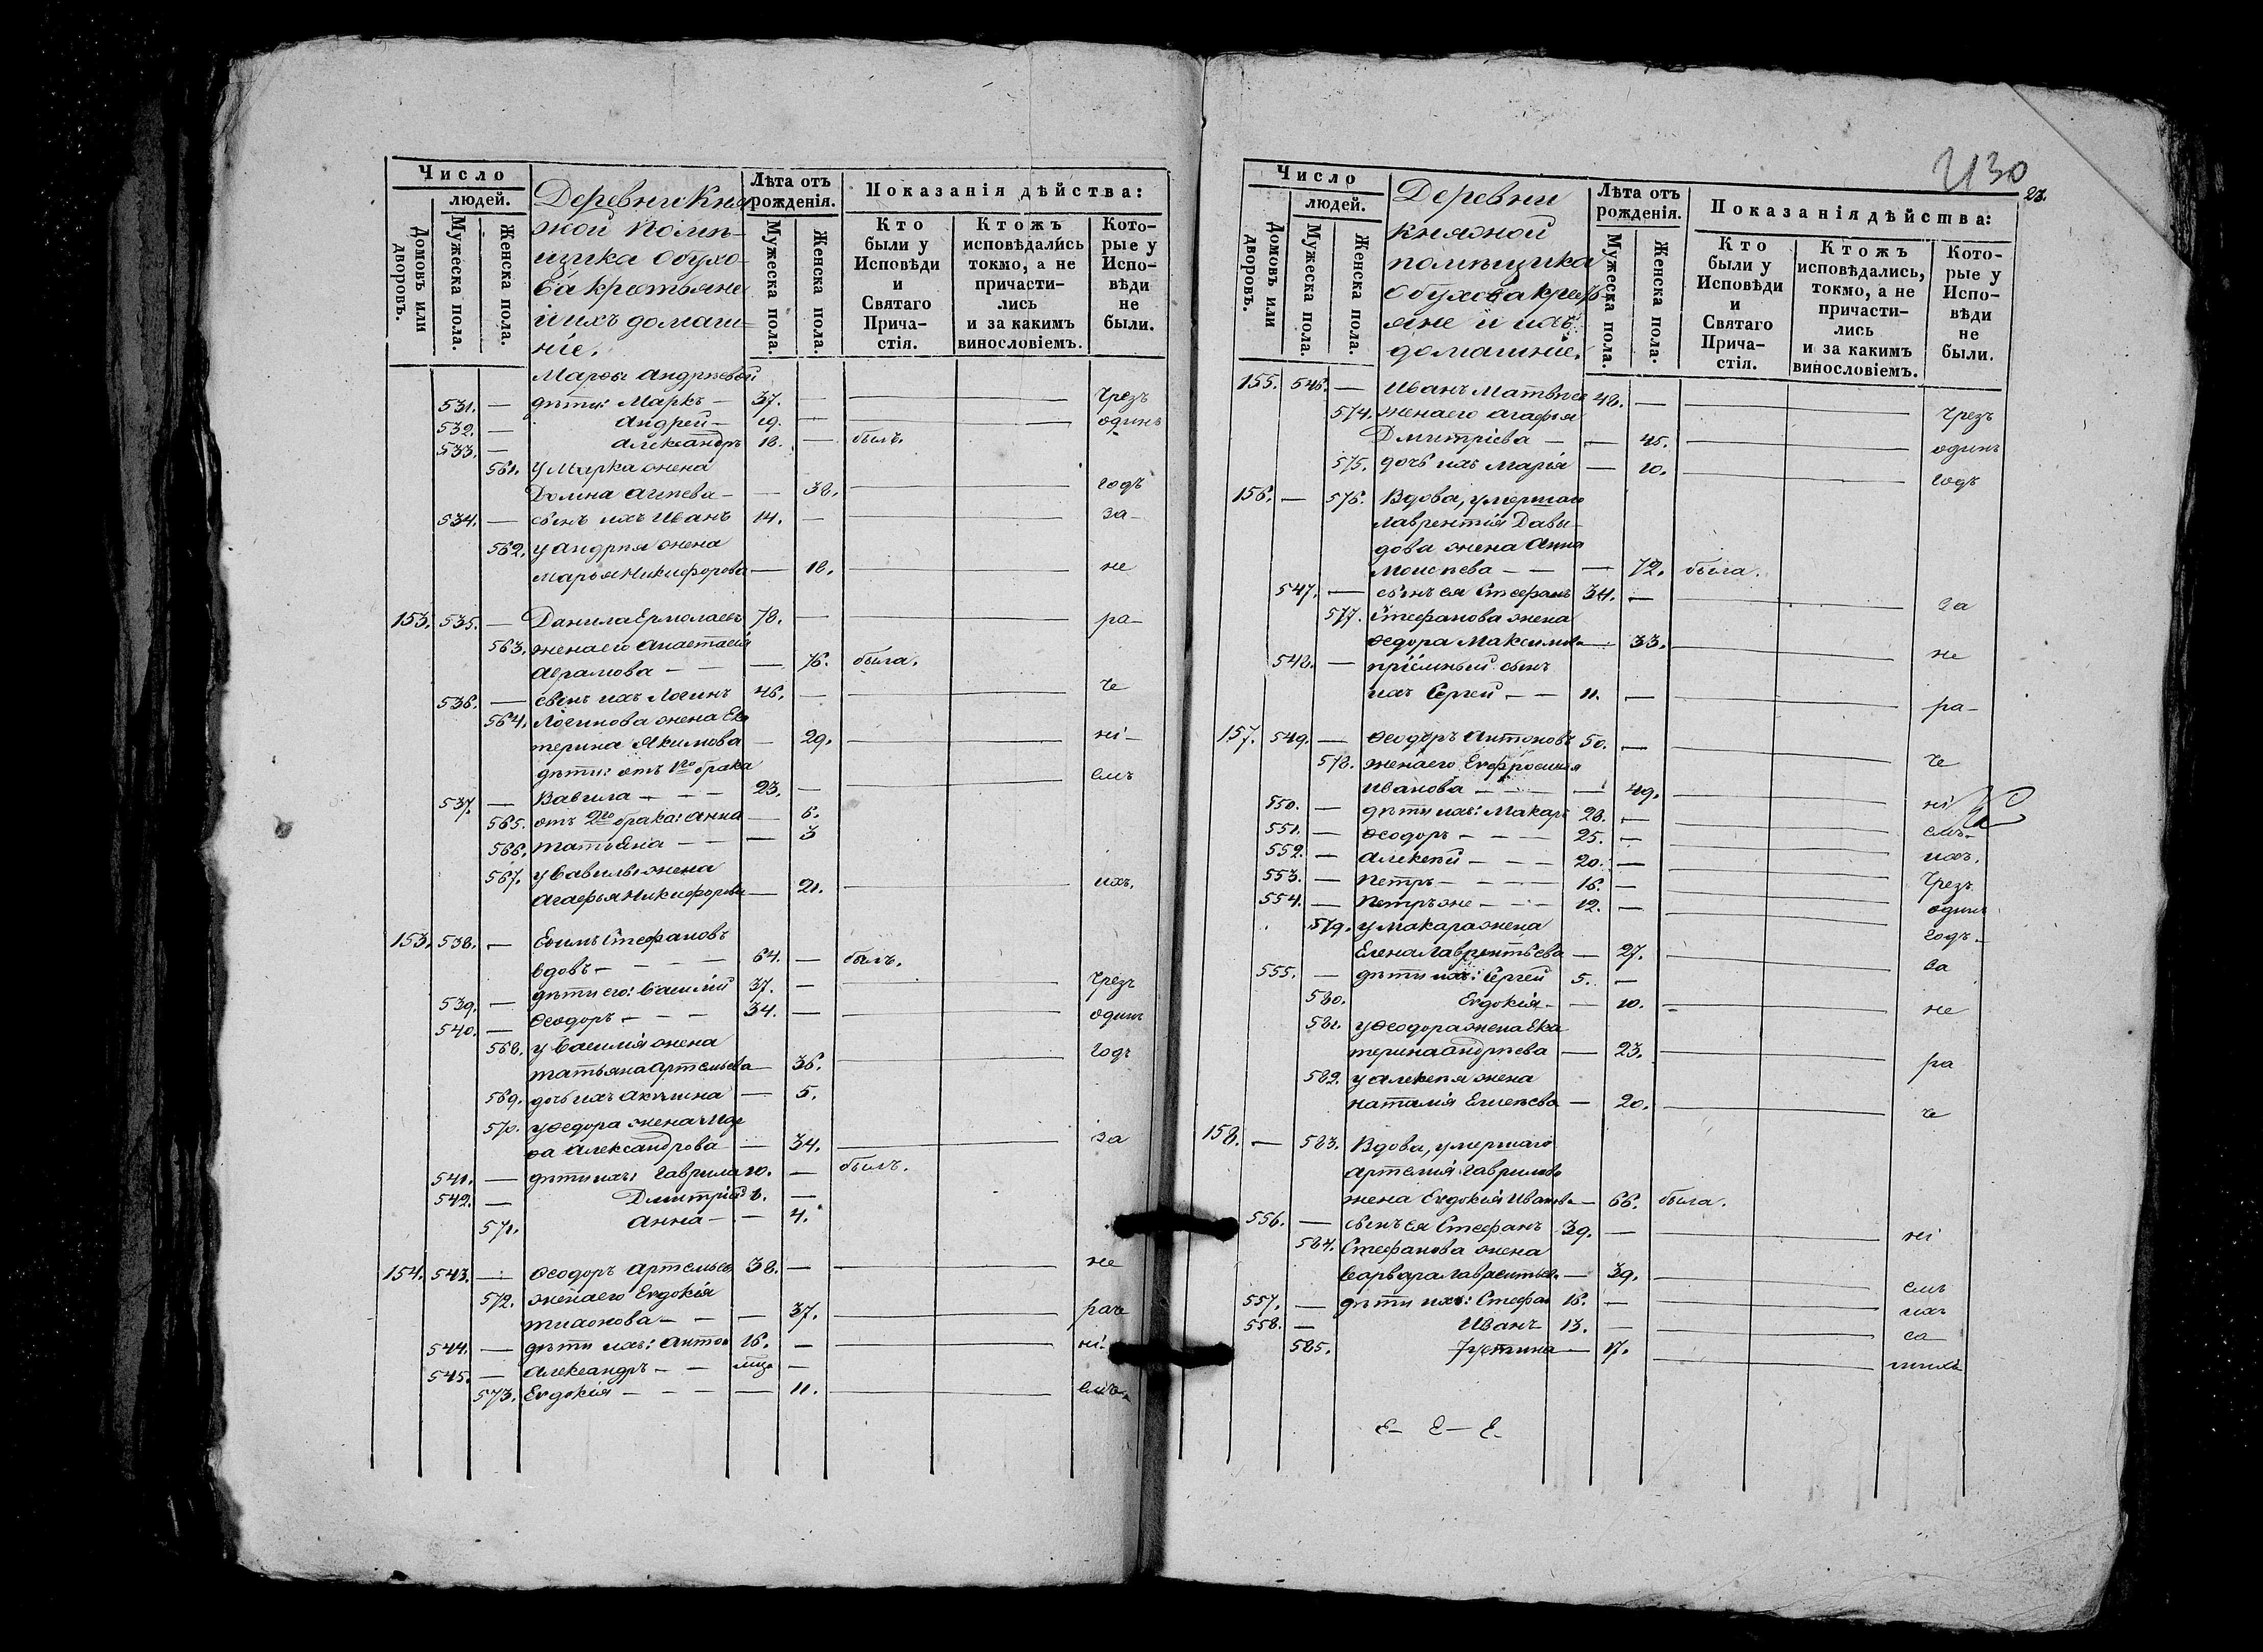 Число
людей.
Домовъ или дворовъ.
Мужеска пола.
Женска пола.
Деревни Кня
жой помѣ-
щика Обухо-
ва крестьяне
и ихъ домаш-
ніе.
Лѣта отъ рожденія.
Мужеска пола.
Женска пола.
Показанія дѣйства:
Кто были у Исповѣди и Святаго Прича-стія.
Ктожъ исповѣдались токмо, а не причасти-лись и за какимъ винословіемъ.
Кото-рые у Испо-вѣди не были.
Марѳы Андреевой
531. — дѣти: Маркъ — 37. — чрезъ
532. — Андрей — 19. — одинъ
533. — Александръ 18. — былъ.
561. у Марка жена
Домна — 38. годъ
534. — сынъ ихъ Иванъ 14. — за-
562. у Андрея жена
Марья Никифорова — 18. не
153. 535. — Данила Ермолаевъ 78. — ра-
563. жена его Анастасія
Аврамова — — — 76. была.
536. — сынъ ихъ Логинъ 46. — че
564. Логинова жена Ека
терина Якимова — 29. ні-
дѣти: отъ 1го брака
537. — Вавила — — — 23. — емъ
565. отъ 2го брака: Анна — 6.
566. Татьяна — — — 3
567. у Вавилы жена
Агафья Никифорова — 21. ихъ.
153. 538. — Стефановъ
вдовъ — — — 64. — былъ.
539. — дѣти его: Василій 37. — чрезъ
540. — Ѳеодоръ — — — 34. — одинъ
568. у Василія жена
Татьяна Артемьева — 36. годъ
569. дочь ихъ Акилина — 5.
570. у Ѳедора жена
Александрова — 34. за
541. — дѣти ихъ: Гаврила 10. — былъ.
542. — Дмитрій —
571. Анна — — 4.
154. 543. — Ѳеодоръ Артемьевъ 38. — не
572. жена его Евдокія
Тихонова — — — 37. раче
544. — дѣти ихъ: Антонъ 16. — ні-
545. — Александръ — — —
573. Евдокія — — — — 11. емъ-
28.
Число
людей.
Домовъ или дворовъ.
Мужеска пола.
Женска пола.
Деревни
княжой
помѣщика
Обухова кресть
яне и ихъ
домашніе.
Лѣта отъ рожденія.
Мужеска пола.
Женска пола.
Показанія дѣйства:
Кто были у Исповѣди и Святаго Прича-стія.
Ктожъ исповѣдались, токмо, а не причасти-лись и за какимъ винословіемъ.
Кото-рые у Испо-вѣди не были.
155. 546. — Иванъ Матвѣевъ 48. — чрезъ
574. жена его Агафья
Дмитріева — — 45. одинъ
575. дочь ихъ Марія — 10. годъ
156. — 576. Вдова, умершаго
Лаврентія Давы-
дова жена Анна
Моисѣева — — — 72. была.
547. — сынъ ея Стефанъ 34. — за
577. Стефанова жена
Ѳедора Максимова — 33. не
548. — пріемный сынъ
ихъ Сергей — — 11. — ра-
157. 549. — Ѳеодоръ Антоновъ 50. — че
578. жена его Евфросинія
Иванова — — — — 49. ні
550. — дѣти ихъ: Макаръ 28. — емъ-
551. — Ѳеодоръ — — — 25. — ихъ.
552. — Алексѣй — — — 20. — чрезъ
553. — Петръ — — — 16. — одинъ
554. — Петръ же — — — 12. — годъ-
579. у Макара жена
Елена Лаврентьева — 27. за
555. — дѣти ихъ: Сергей 5. —
580. Евдокія — — 10. не
581. у Ѳеодора жена Ека
терина Андреева — 23. ра
582. у Алексѣя жена
Наталія Елисѣева — 20. че
158. — 583. Вдова, умершаго
Артемія Гаврилова
жена Евдокія Иванова — 66. была.
556. — сынъ ея Стефанъ 39. — ні
584. Стефанова жена
Варвара — 39. емъ
557. — дѣти ихъ: Стефанъ 16. — ихъ
558. — Иванъ 13. —
585. Устина — 17.